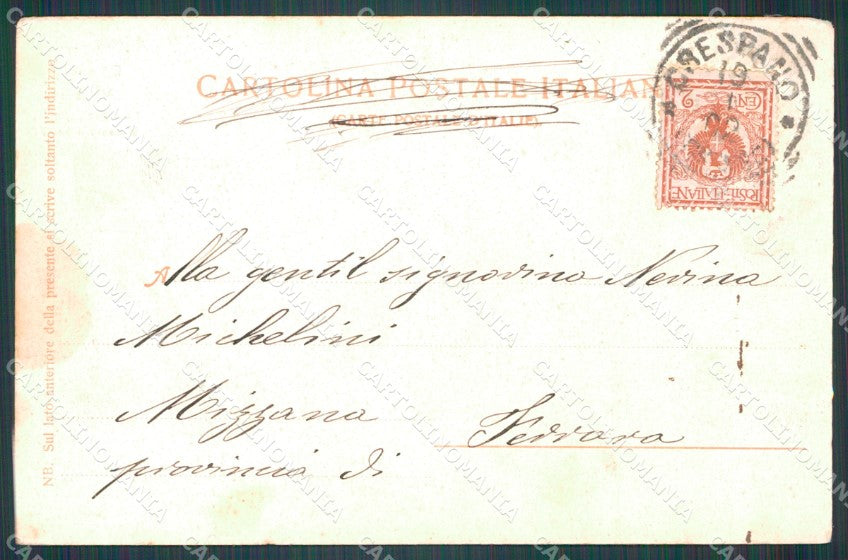 CARTOLINA POSTALE ITALIANA
(CARTE POSTALE D'ITALIE).
CRESPANO
19
CENT 2
POSTE ITALIANE
Alla gentil signorina Nerina
Michelini
Mizzana
Ferrara
provincia di
NB. Sul lato anteriore della presente si scrive soltanto l'indirizzo
CARTOLINOMANIA